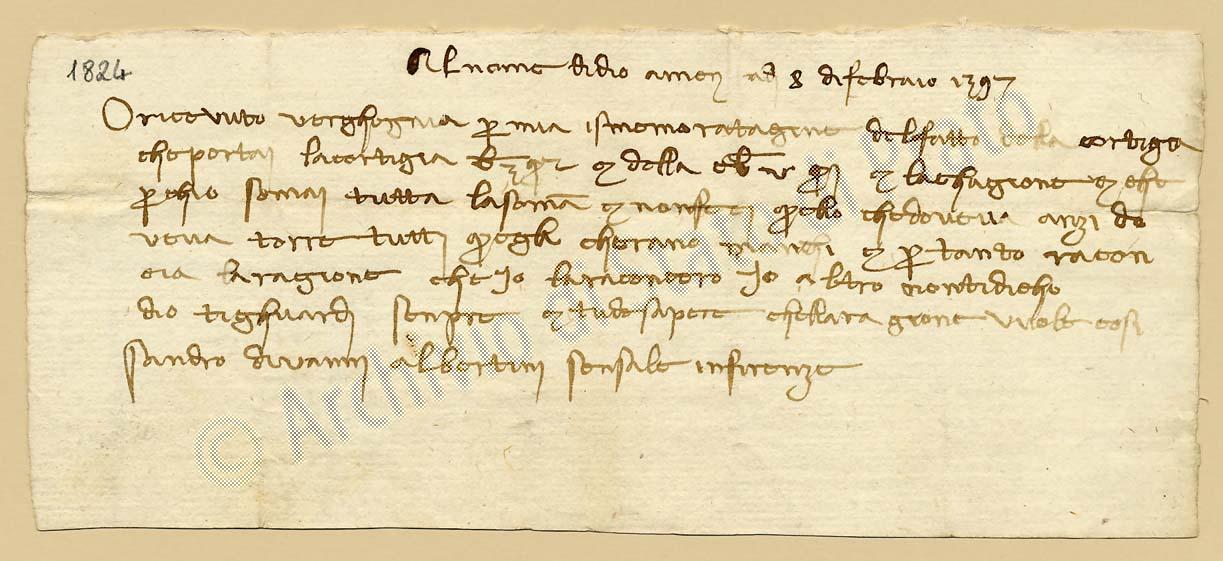 1824
Al nome didio amen adi 8 difebraio 1397
Oricevuto verghognia p mia ismemoratagine delfatto della cortigia
che portai lacortigia e della e lachagione e che
p chio somai tutta lasoma e nonfeci quello chedoveva anzi do
veva torre tutti quegli cherano manchi e p tanto racon
cia laragione che Io laraconcero Io altro nontidicho
dio tighuardi senpre e tudosapere chellara gione vuole cosi
Sandro divanni albertini sensale infirenze
© Archivio di Stato di Prato